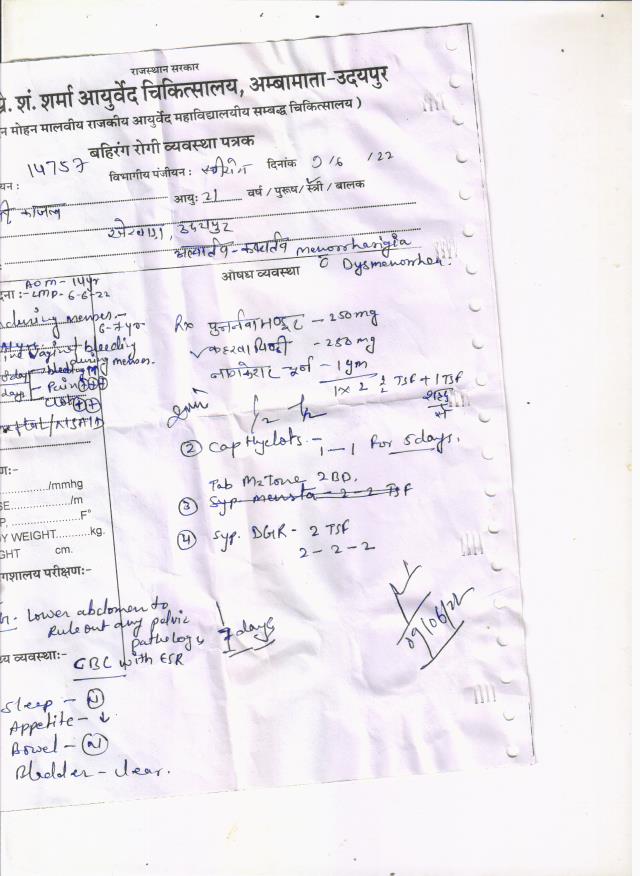 राजस्थान सरकार
प्रे. शं. शर्मा आयुर्वेद चिकित्सालय, अम्बामाता-उदयपुर
न मोहन मालवीय राजकीय आयुर्वेद महाविद्यालयीय सम्बद्ध चिकित्सालय )
बहिरंग रोगी व्यवस्था पत्रक
यन : 14757 विभागीय पंजीयन : दिनांक 9/6 /22
आयु: 21 वर्ष / पुरूष/ स्त्री / बालक
उदयपुर
Menorrhargia
c Dysmenorrhea.
AOM - 14yr
LMP - 6-6-22
औषध व्यवस्था
during menses.-
6-7yr
bleeding
during menses.
days - Pain +++
+++
Rx पुनर्नवा मण्डूर - 250 mg
कहरवा पिष्टी - 250 mg
नागकेशर चूर्ण - 1 gm
1x2
TSF + 1 TSF
शहद
से
② Cap Hyclots - 1-1 for 5 days.
Tab M2Tone 2BD.
③ Syp Mensta - 2-2 TSF
④ Syp. DGR - 2 TSF
2-2-2
णः-
............/mmhg
SE............../m
P. ................F°
Y WEIGHT..........kg.
GHT cm.
गशालय परीक्षण:-
Lower abdomen to
Rule out any pelvic
pathology
7 days
य व्यवस्था:-
CBC with ESR
09/06/22
Sleep - N
Appetite - ↓
Bowel - N
Bladder - clear.